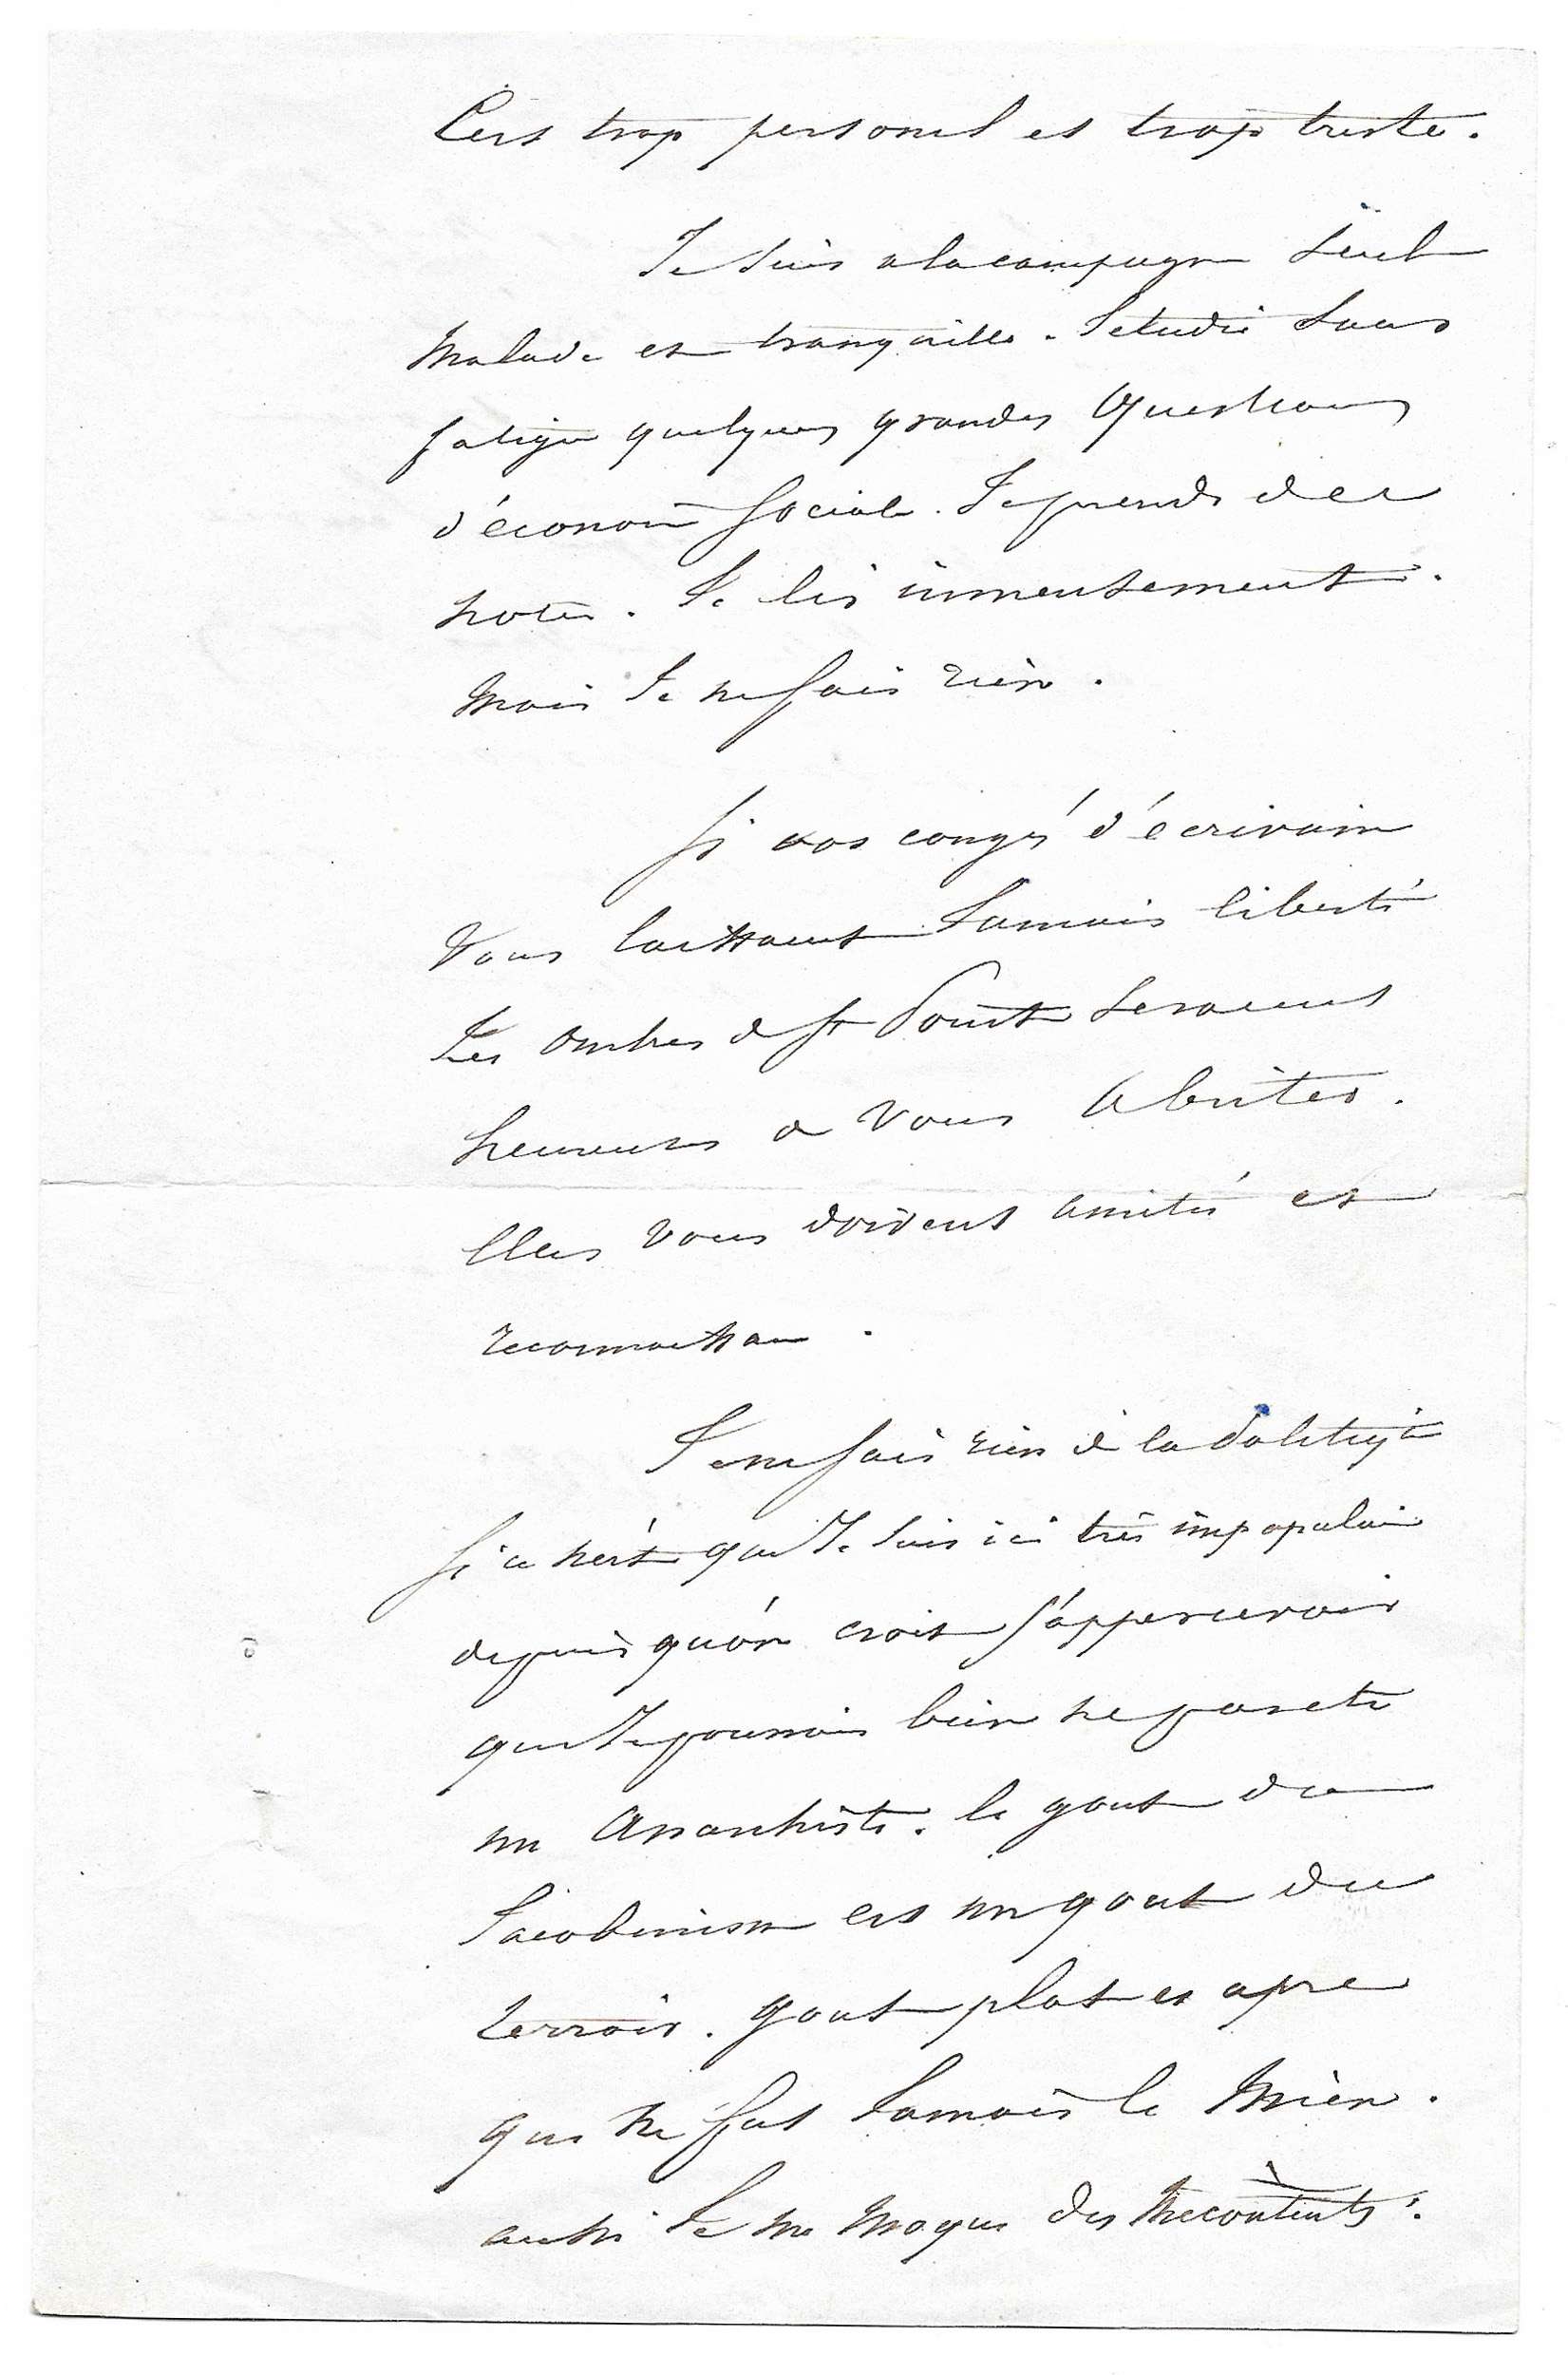 C'est trop personel et trop triste.
Je suis a la campagne seul
malade et tranquille. J'etudie sans
fatigue quelques grandes questions
d'économie sociale. Je prends des
notes. Je lis immensement.
Mais Je ne fais rien.
Si vos congés d'écrivain
vous laissent Jamais liberté
Les ombres de St Point seraient
heureuses de vous abriter.
Elles vous doivent amitié et
reconnaissance.
Je ne sais rien de la Politique
Si ce n'est que Je suis ici très impopulaire
depuis qu'on croit s'appercevoir
que Je pourrais bien ne pas etre
un anarchiste. le gout du
Jacobinisme est un gout du
terroir. gout plat et apre
qui ne fut Jamais le Mien.
aussi Je me moque des Mecontents.